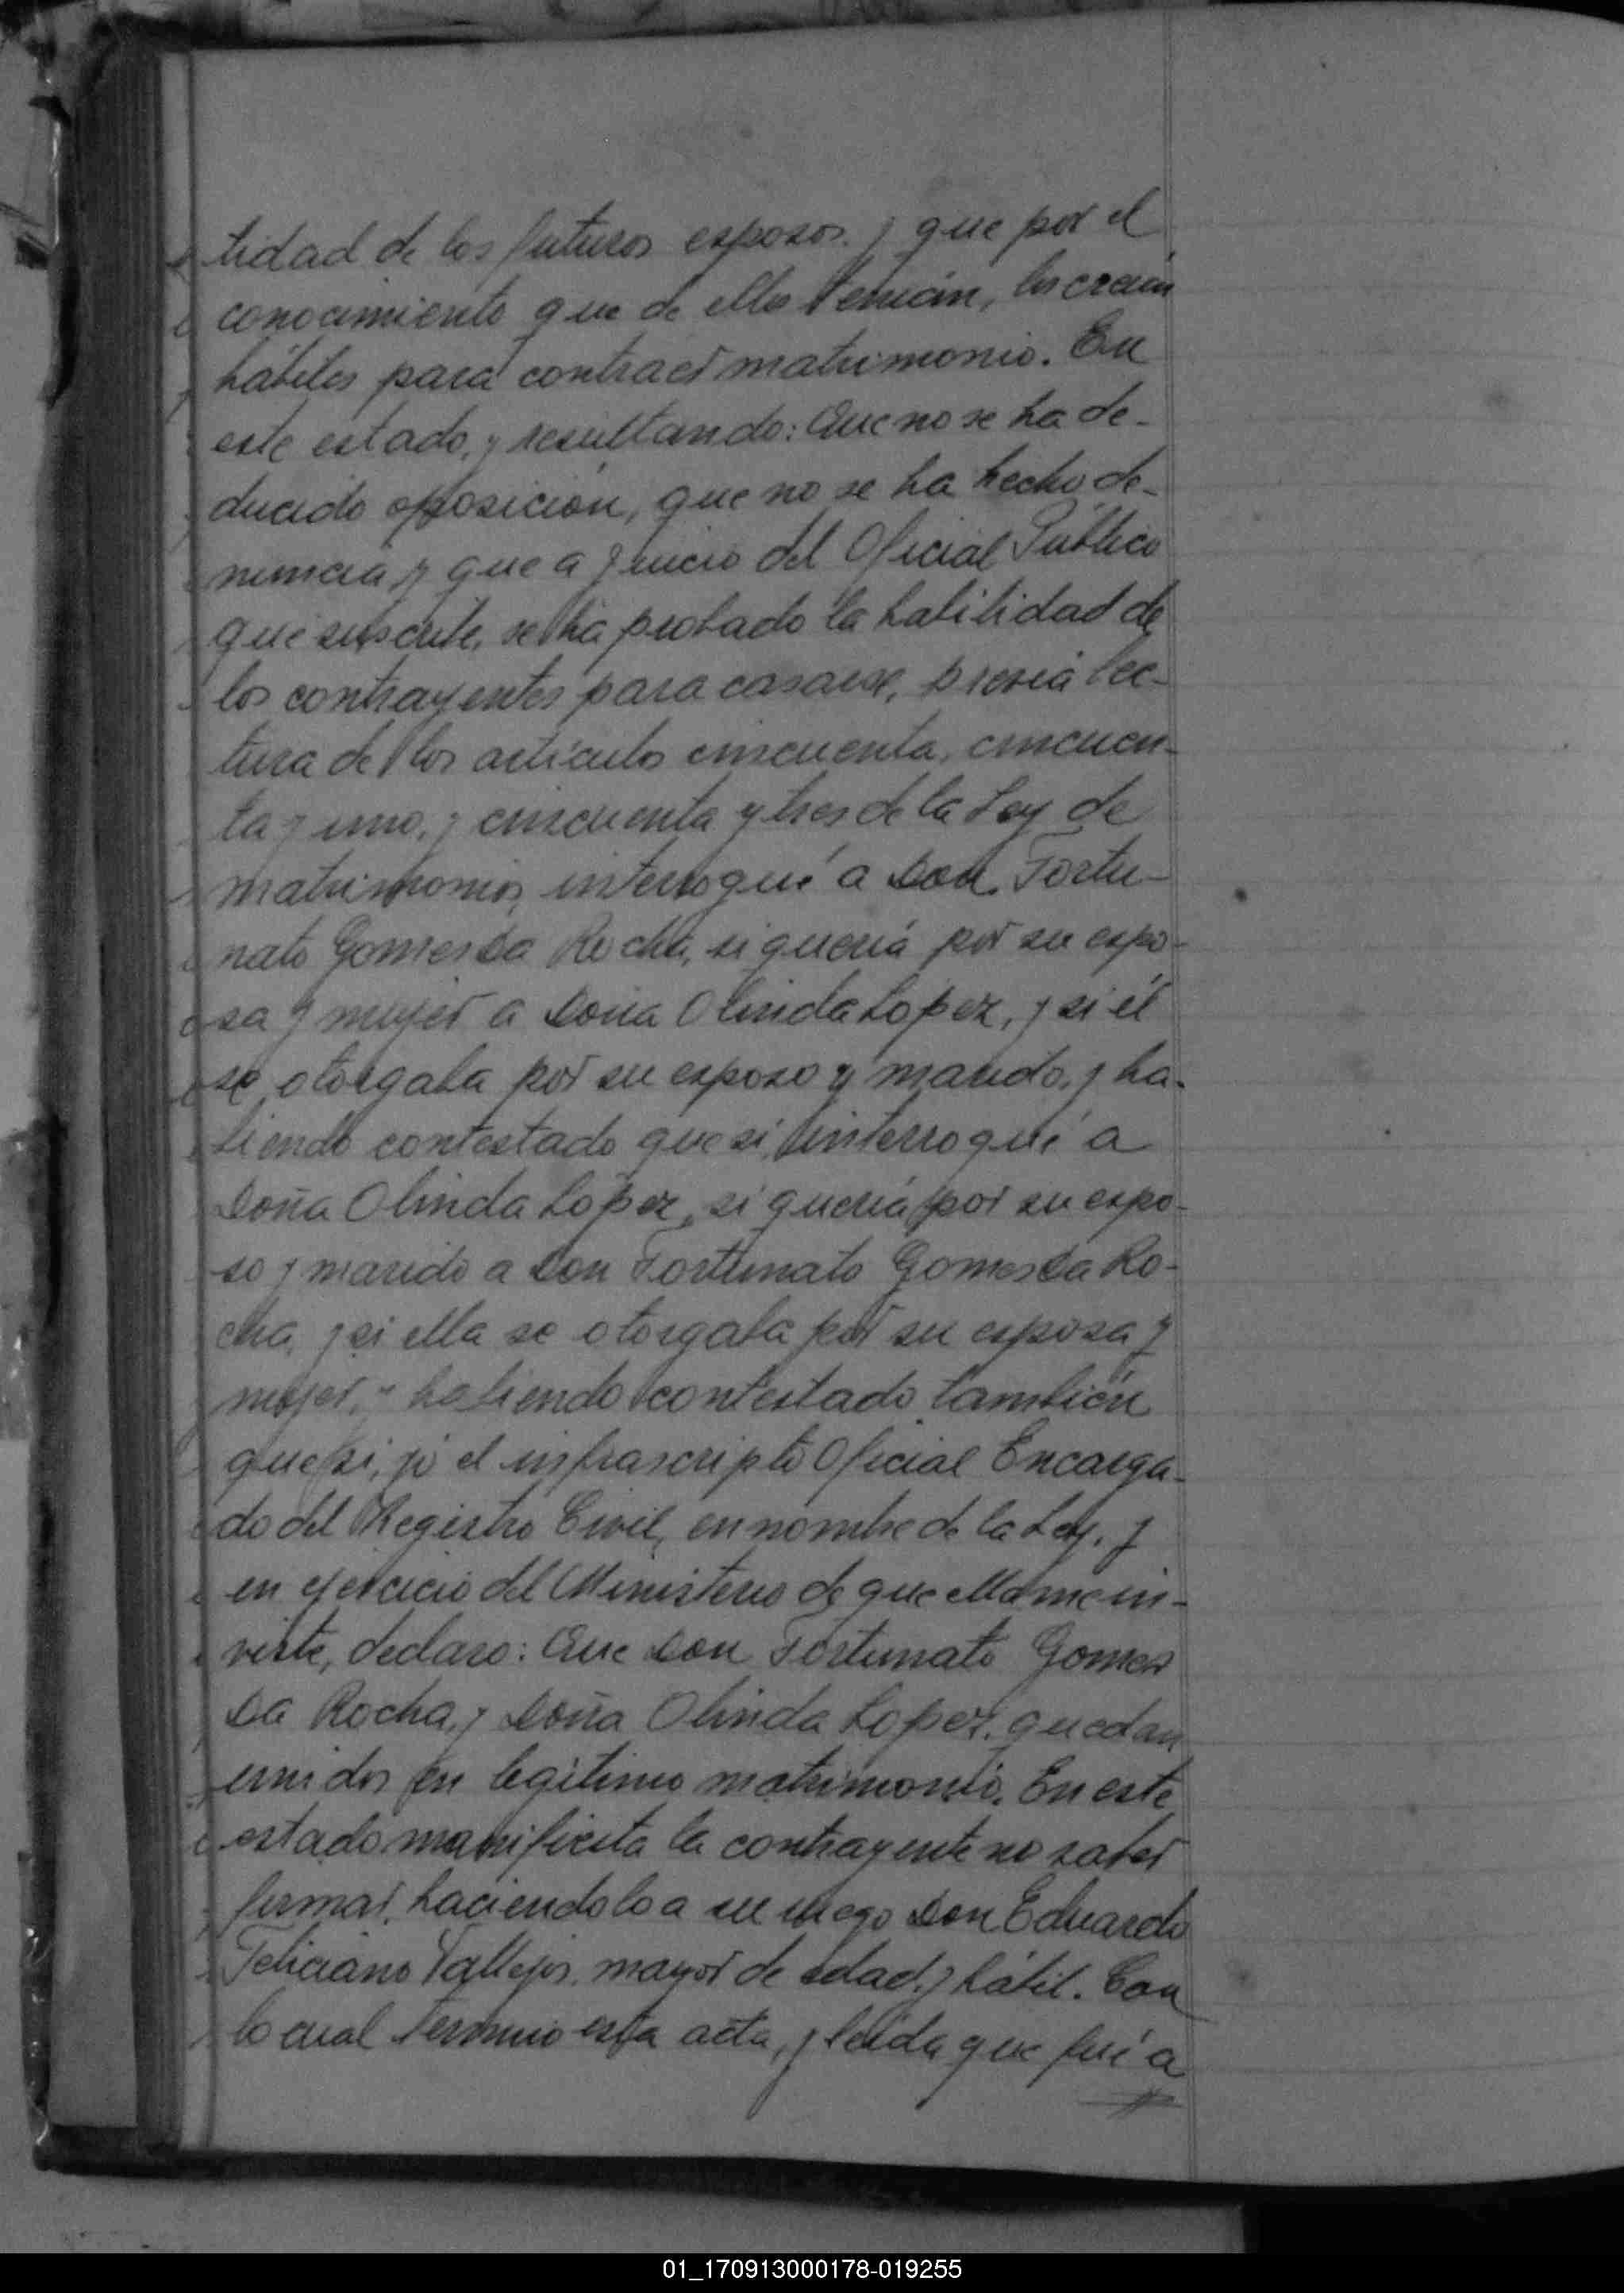 tidad de los futuros esposos. y que por el
conocimiento que de ellos tenian, los creian
hábiles para contraer matrimonio. En
este estado, y resultando: Que no se ha de-
ducido oposicion, que no se ha hecho de-
nuncia y que a juicio del Oficial Público
que suscribe, se ha probado la habilidad de
los contrayentes para casarse, previa lec-
tura de los articulos cincuenta, cincuen-
ta y uno, y cincuenta y tres de la Ley de
matrimonios, interrogué a Don Fortu-
nato Gomes Da Rocha, si queria por su espo-
sa y mujer a Doña Olinda Lopez, y si él
se otorgaba por su esposo y marido, y ha-
biendo contestado que si, interrogué a
Doña Olinda Lopez, si queria por su espo-
so y marido a Don Fortunato Gomes Da Ro-
cha, y si ella se otorgaba por su esposa y
mujer, y habiendo contestado tambien
que si, yo el infrascripto Oficial Encarga-
do del Registro Civil, en nombre de la Ley, y
en ejercicio del Ministerio de que ella me in-
viste, declaro: Que Don Fortunato Gomes
Da Rocha, y Doña Olinda Lopez, quedan
unidos en legitimo matrimonio. En este
estado manifiesta la contrayente no saber
firmar, haciendolo a su ruego Don Eduardo
Feliciano Vallejos, mayor de edad y hábil. Con
lo cual termino esta acta, y leida que fué a
01_170913000178-019255